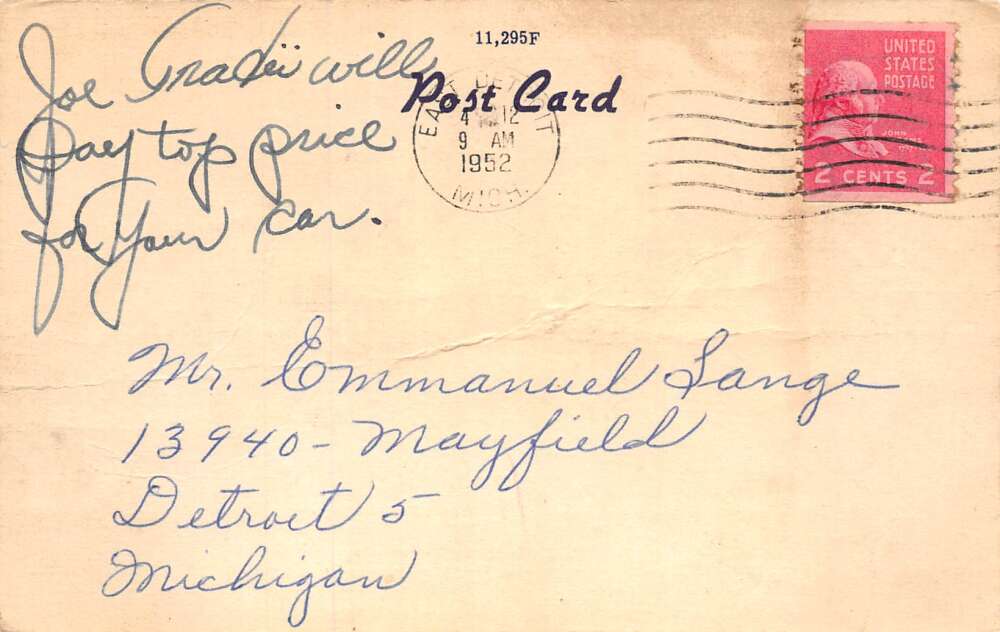 11,295F
Post Card
Joe will
pay top price
for your car.
EAST DETROIT
4 12
9 AM
1952
MICH.
UNITED
STATES
POSTAGE
JOHN
2 CENTS 2
Mr. Emmanuel Lange
13940 - Mayfield
Detroit 5
Michigan